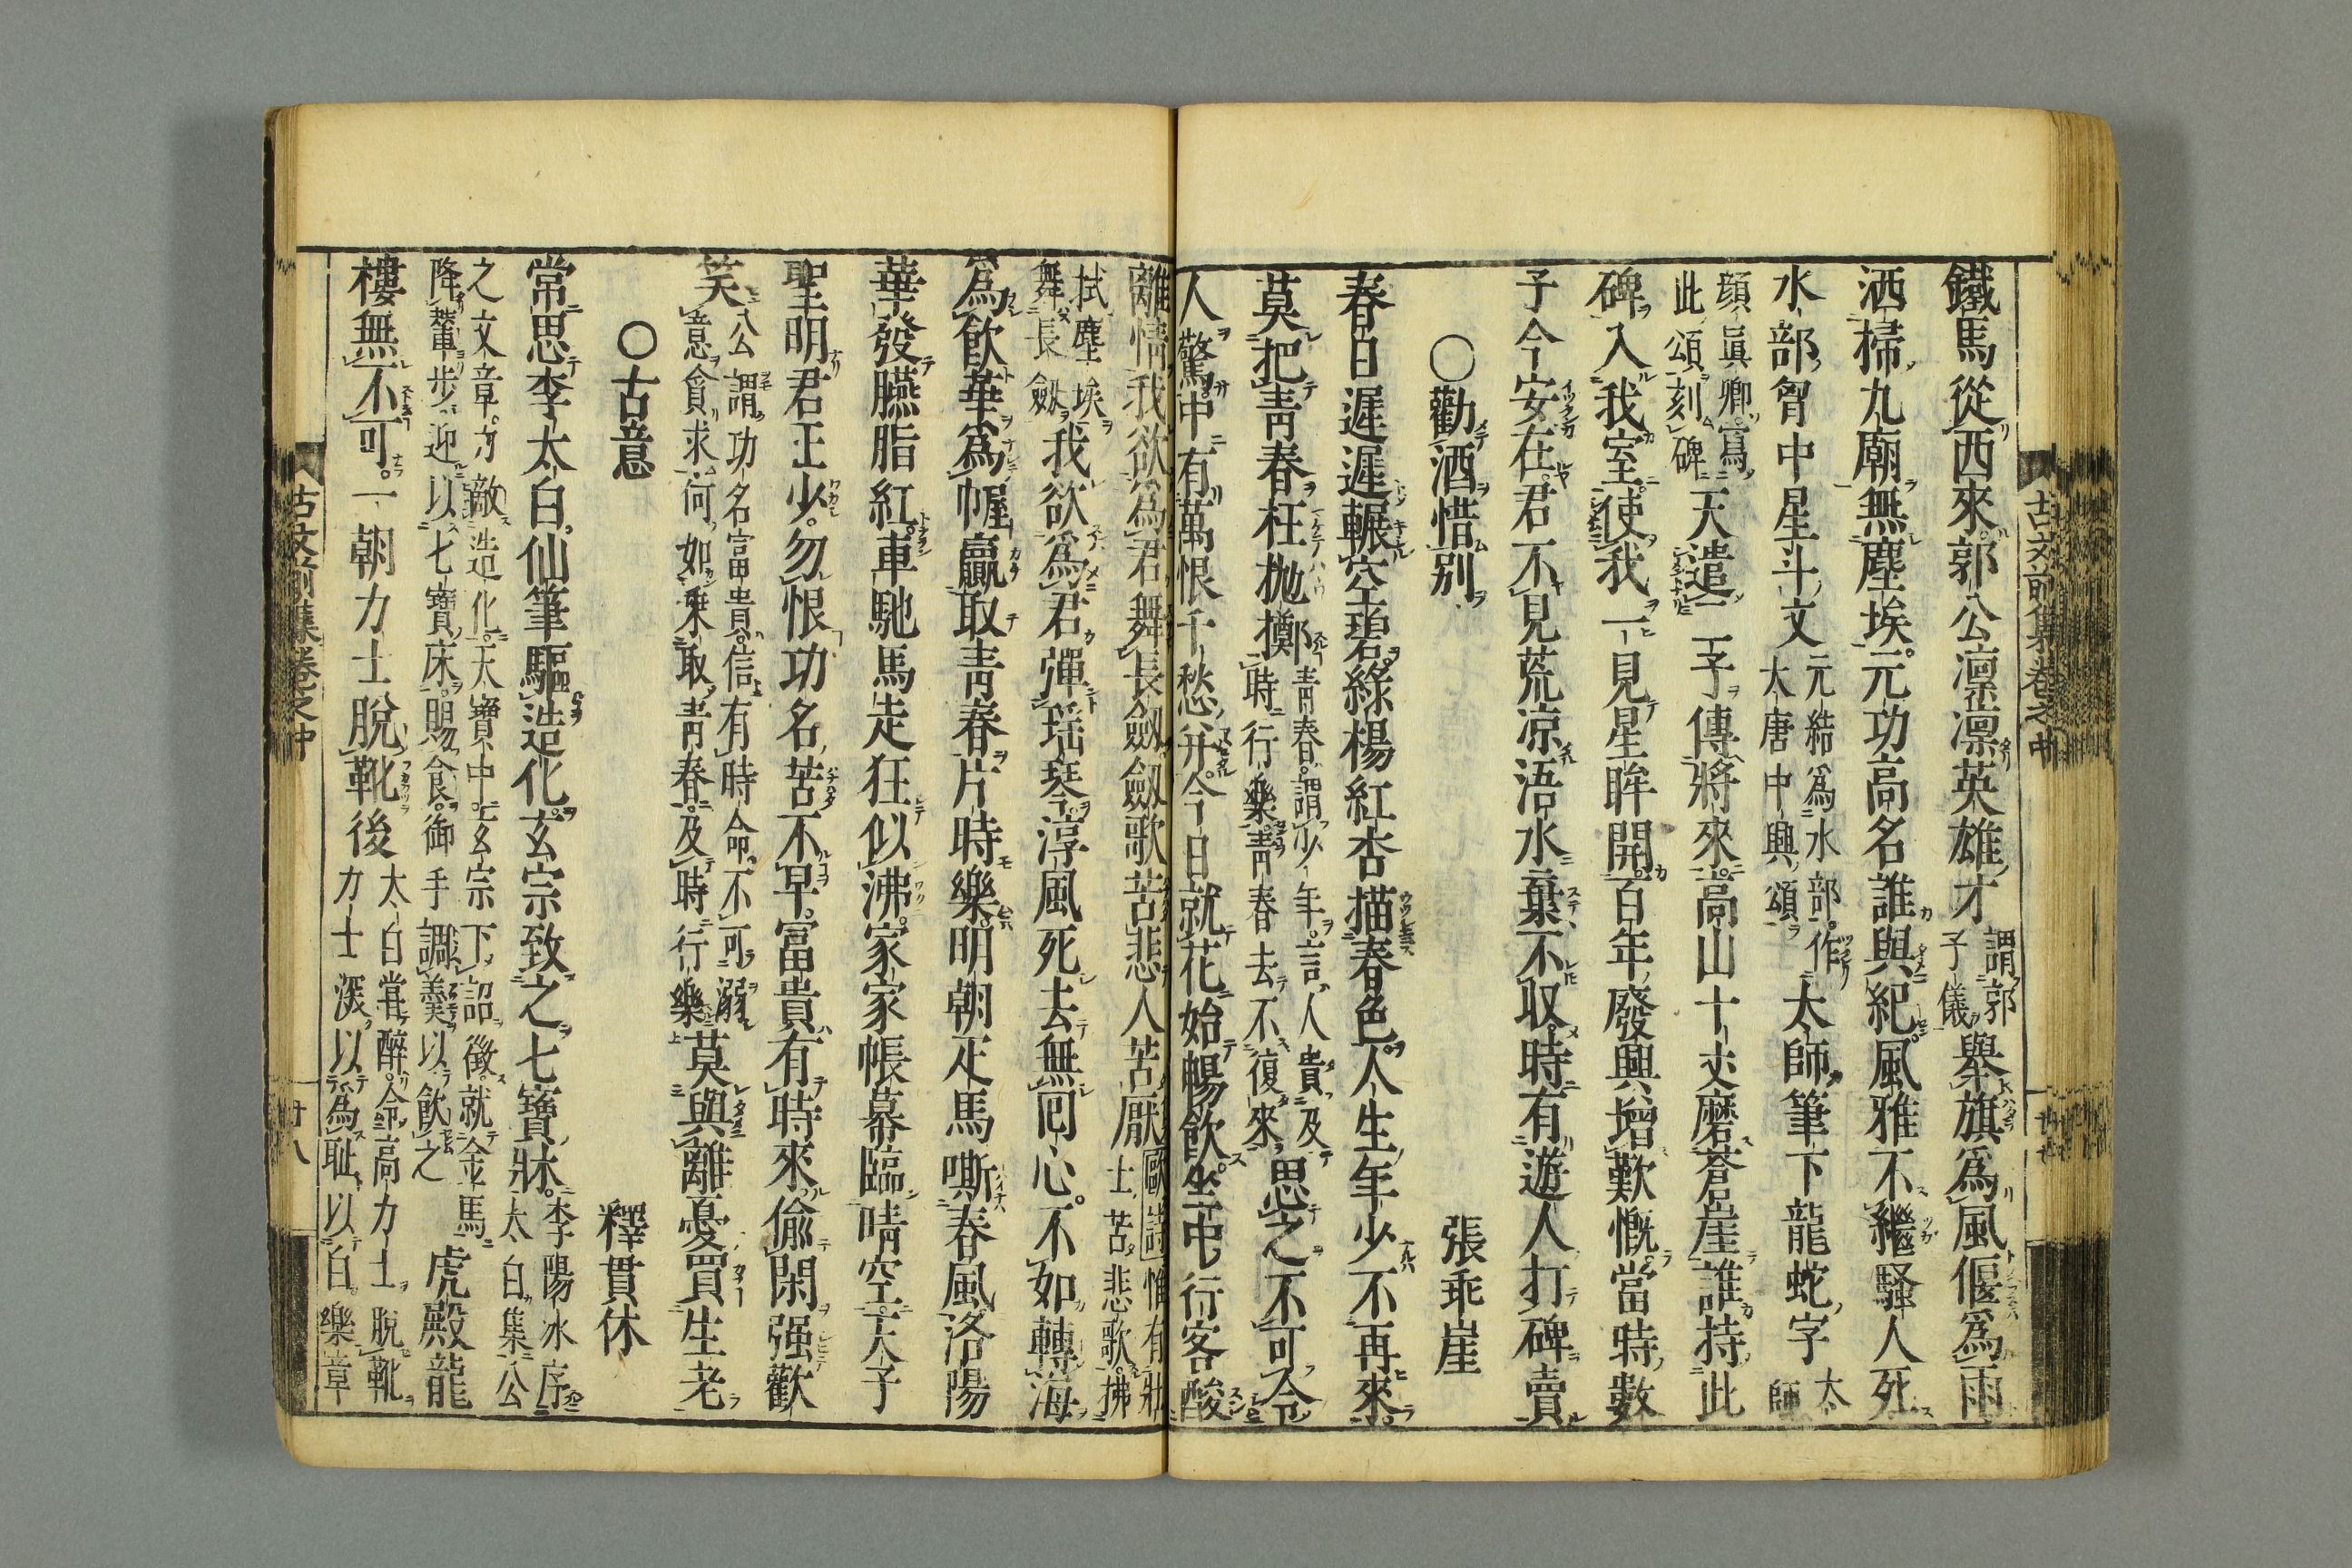 鐵馬從西來郭公凛凛英雄才謂郭子儀舉旗爲風偃爲雨
洒掃九廟無塵埃元功高名誰與紀風雅不繼騷人死
水部胷中星斗文元結爲水部作大唐中興頌太師筆下龍蛇字太師
顔眞卿寫此頌刻碑天遣二子傳將來高山十丈磨蒼崖誰持此
碑入我室使我一見星眸開百年廢興增歎慨當時數
子今安在君不見荒凉浯水棄不収時有遊人打碑賣
○勸酒惜別 張乖崖
春日遲遲輾空碧綠楊紅杏描春色人生年少不再來
莫把青春枉抛擲青春謂少年言人貴及時行樂青春去不復來思之不可令
人驚中有萬恨千愁并今日就花始暢飲坐中行客酸
離情我欲爲君舞長劔劔歌苦悲人苦厭歐詩惟有壯士苦悲歌拂
拭塵埃舞長劔我欲爲君彈瑶琴淳風死去無囘心不如轉海
爲飮華爲幄贏取青春片時樂明朝疋馬嘶春風洛陽
華發臙脂紅車馳馬走狂似沸家家帳幕臨晴空天子
聖明君正少勿恨功名苦不早富貴有時來偸閑强歡
笑公謂功名富貴信有時命不可溺意貪求何如乘取青春及時行樂莫與離憂買生老
○古意 釋貫休
常思李太白仙筆驅造化玄宗致之七寶牀李陽氷序太白集公
之文章力敵造化天寶中玄宗下詔徵就金馬降輦步迎以七寶床賜食御手調羹以飮之虎殿龍
樓無不可一朝力士脫靴後太白嘗醉令高力士脫靴力士深以爲耻以白樂章
古文前集卷之中
古文前集卷之中 廿八